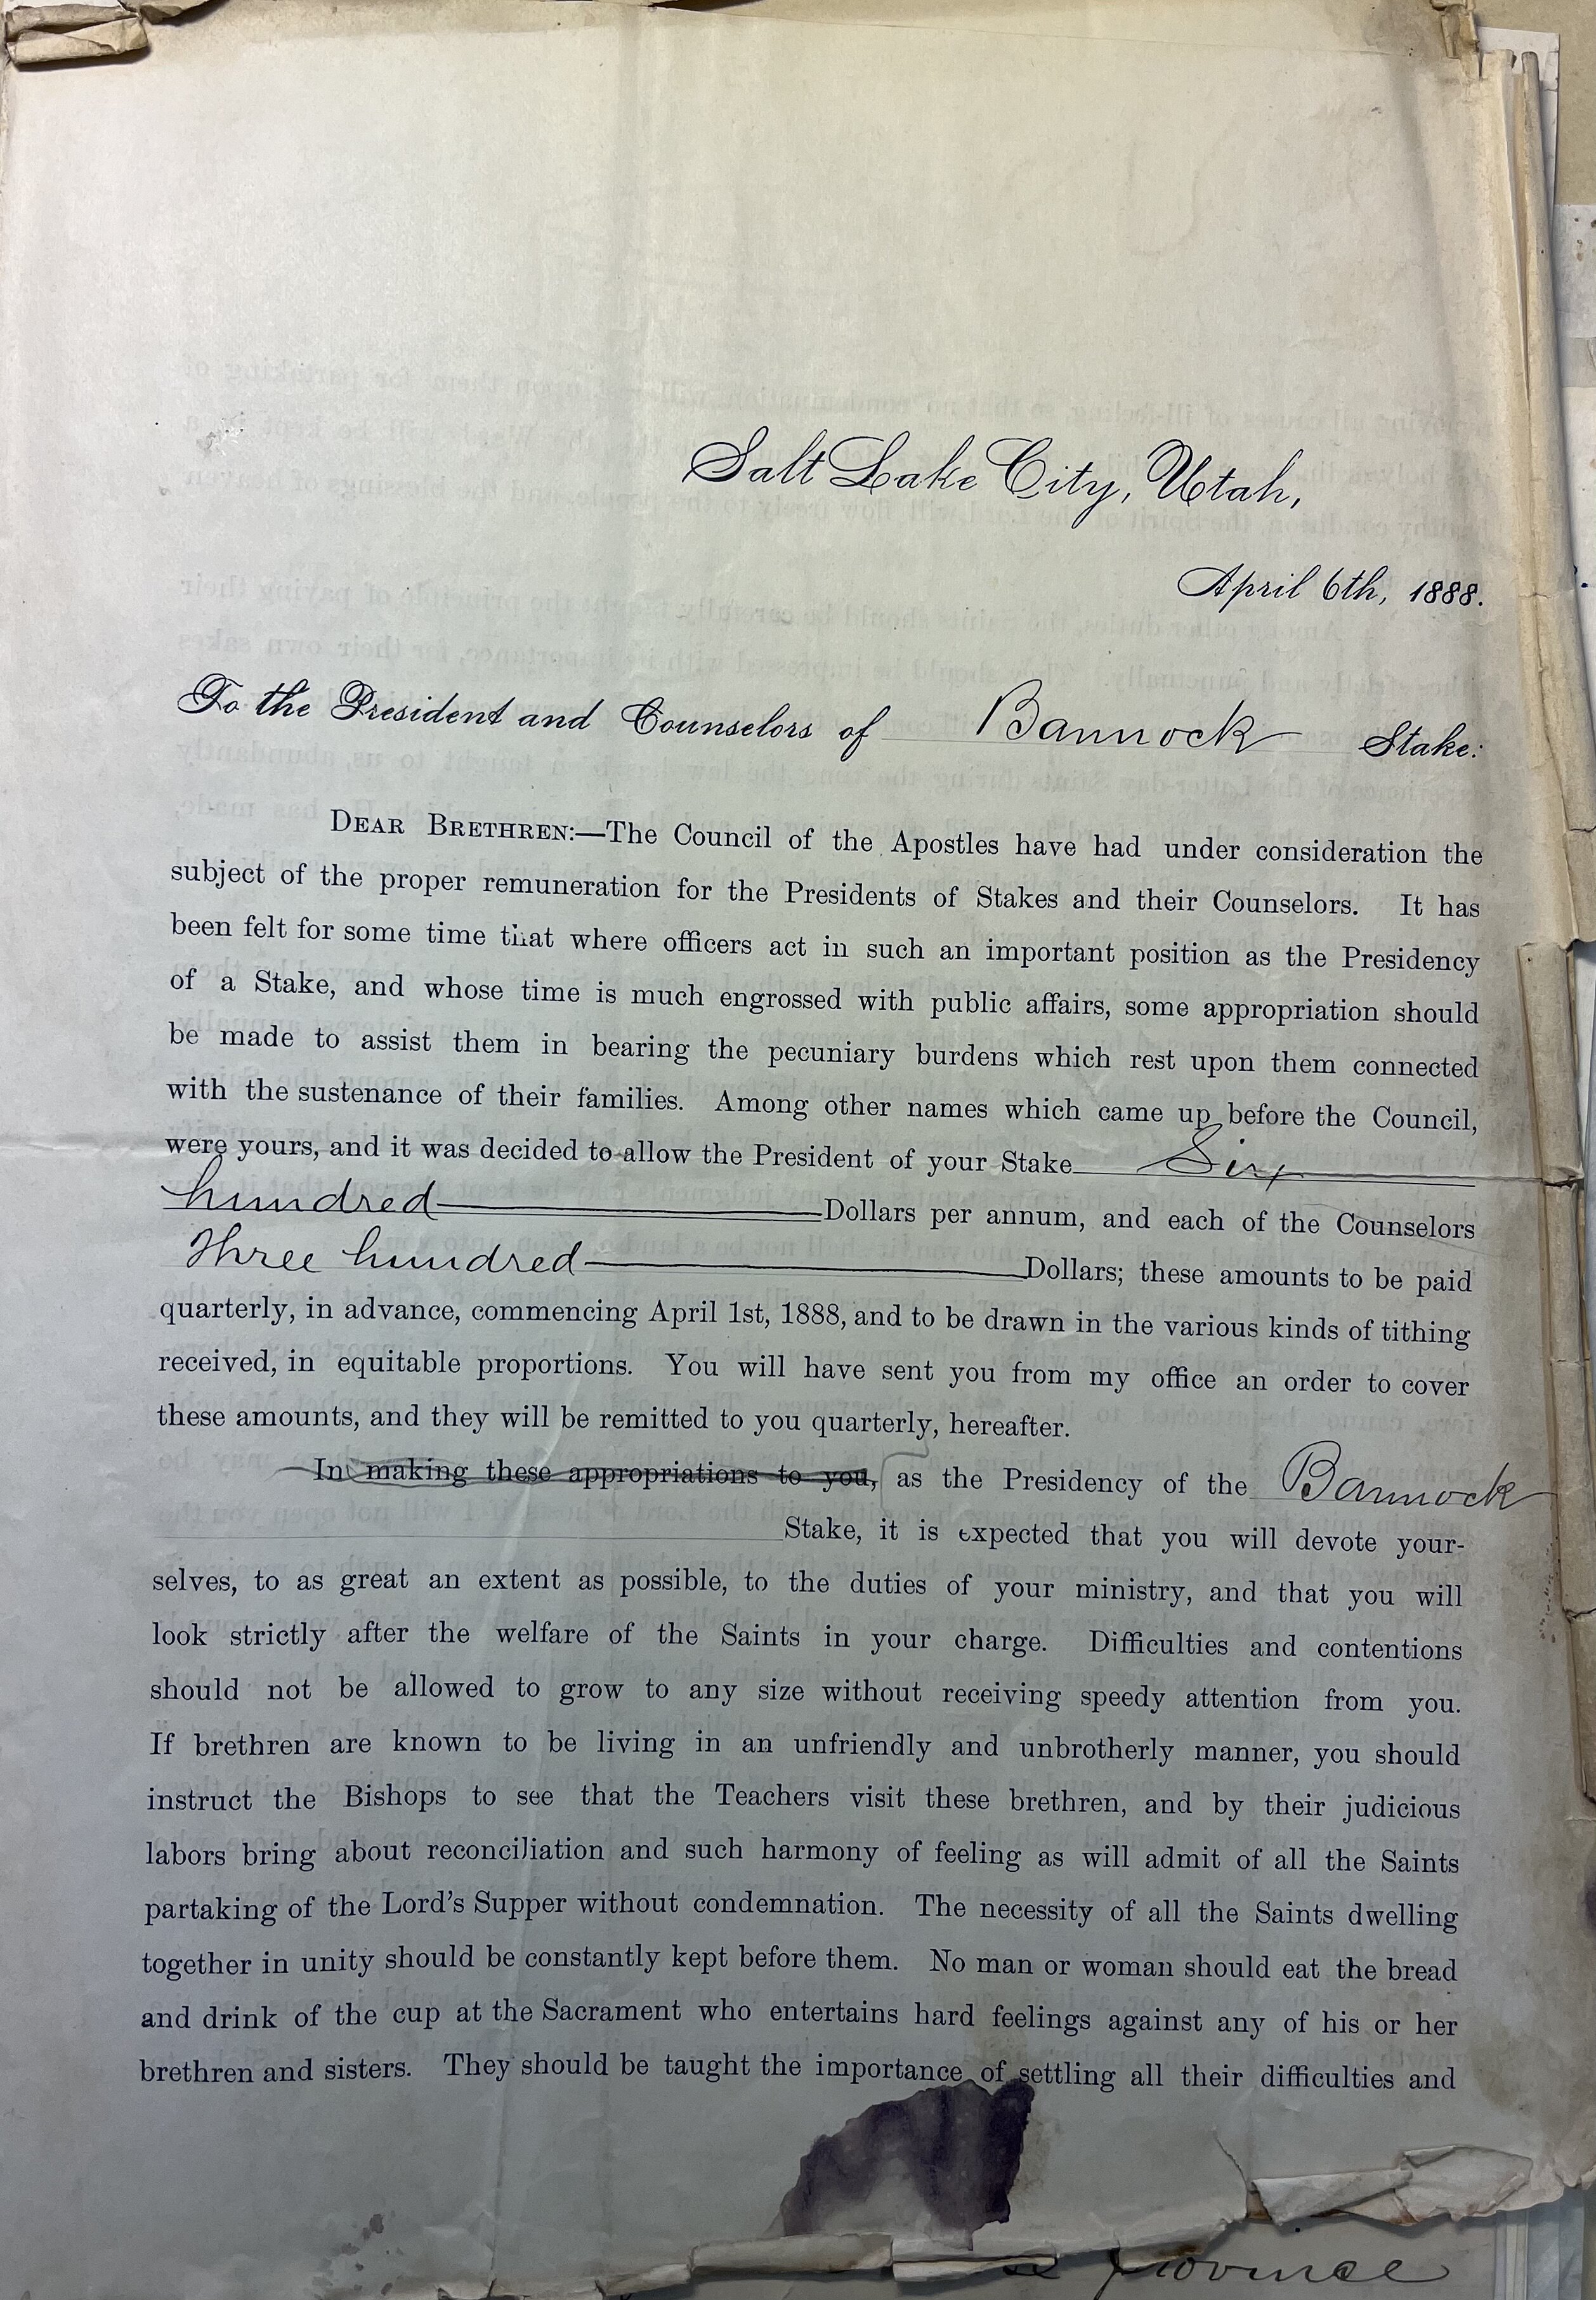 Salt Lake City, Utah,
April 6th, 1888.
To the President and Counselors of Bannock Stake:
DEAR BRETHREN:—The Council of the Apostles have had under consideration the
subject of the proper remuneration for the Presidents of Stakes and their Counselors. It has
been felt for some time that where officers act in such an important position as the Presidency
of a Stake, and whose time is much engrossed with public affairs, some appropriation should
be made to assist them in bearing the pecuniary burdens which rest upon them connected
with the sustenance of their families. Among other names which came up before the Council,
were yours, and it was decided to allow the President of your Stake Six
hundred Dollars per annum, and each of the Counselors
Three hundred Dollars; these amounts to be paid
quarterly, in advance, commencing April 1st, 1888, and to be drawn in the various kinds of tithing
received, in equitable proportions. You will have sent you from my office an order to cover
these amounts, and they will be remitted to you quarterly, hereafter.
In making these appropriations to you, as the Presidency of the Bannock
Stake, it is expected that you will devote your-
selves, to as great an extent as possible, to the duties of your ministry, and that you will
look strictly after the welfare of the Saints in your charge. Difficulties and contentions
should not be allowed to grow to any size without receiving speedy attention from you.
If brethren are known to be living in an unfriendly and unbrotherly manner, you should
instruct the Bishops to see that the Teachers visit these brethren, and by their judicious
labors bring about reconciliation and such harmony of feeling as will admit of all the Saints
partaking of the Lord's Supper without condemnation. The necessity of all the Saints dwelling
together in unity should be constantly kept before them. No man or woman should eat the bread
and drink of the cup at the Sacrament who entertains hard feelings against any of his or her
brethren and sisters. They should be taught the importance of settling all their difficulties and
province